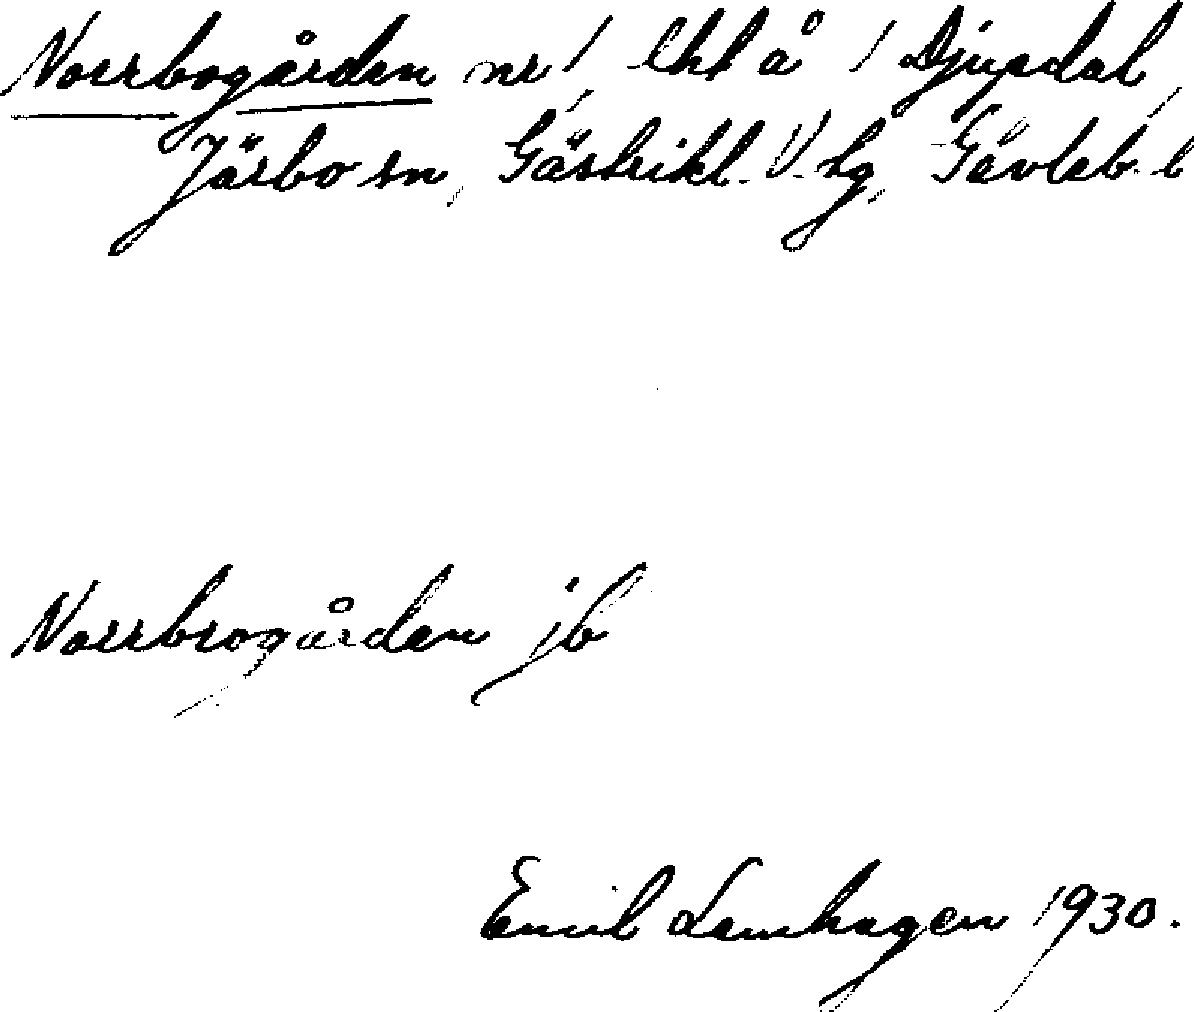 Norrbogården nr 1, lht å 1 Djupdal,
Järbo sn, Gästrikl. V. hg, Gävleb. l
Norrbrogården jb
Emil Lemhagen 1930.